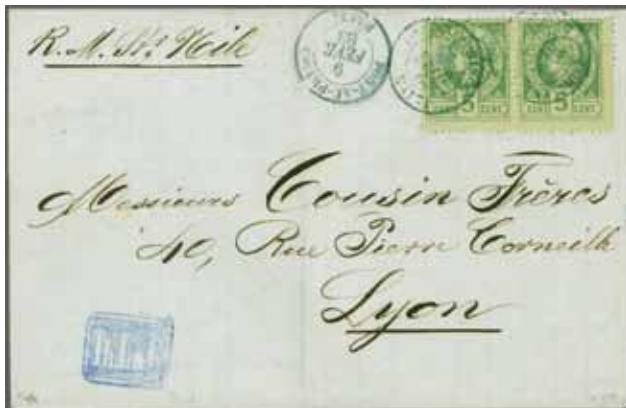 R. M. Str Nile
9
FEVR
5 5
CENT CENT
Messieurs Cousin Frères
40, Rue Pierre Corneille
Lyon